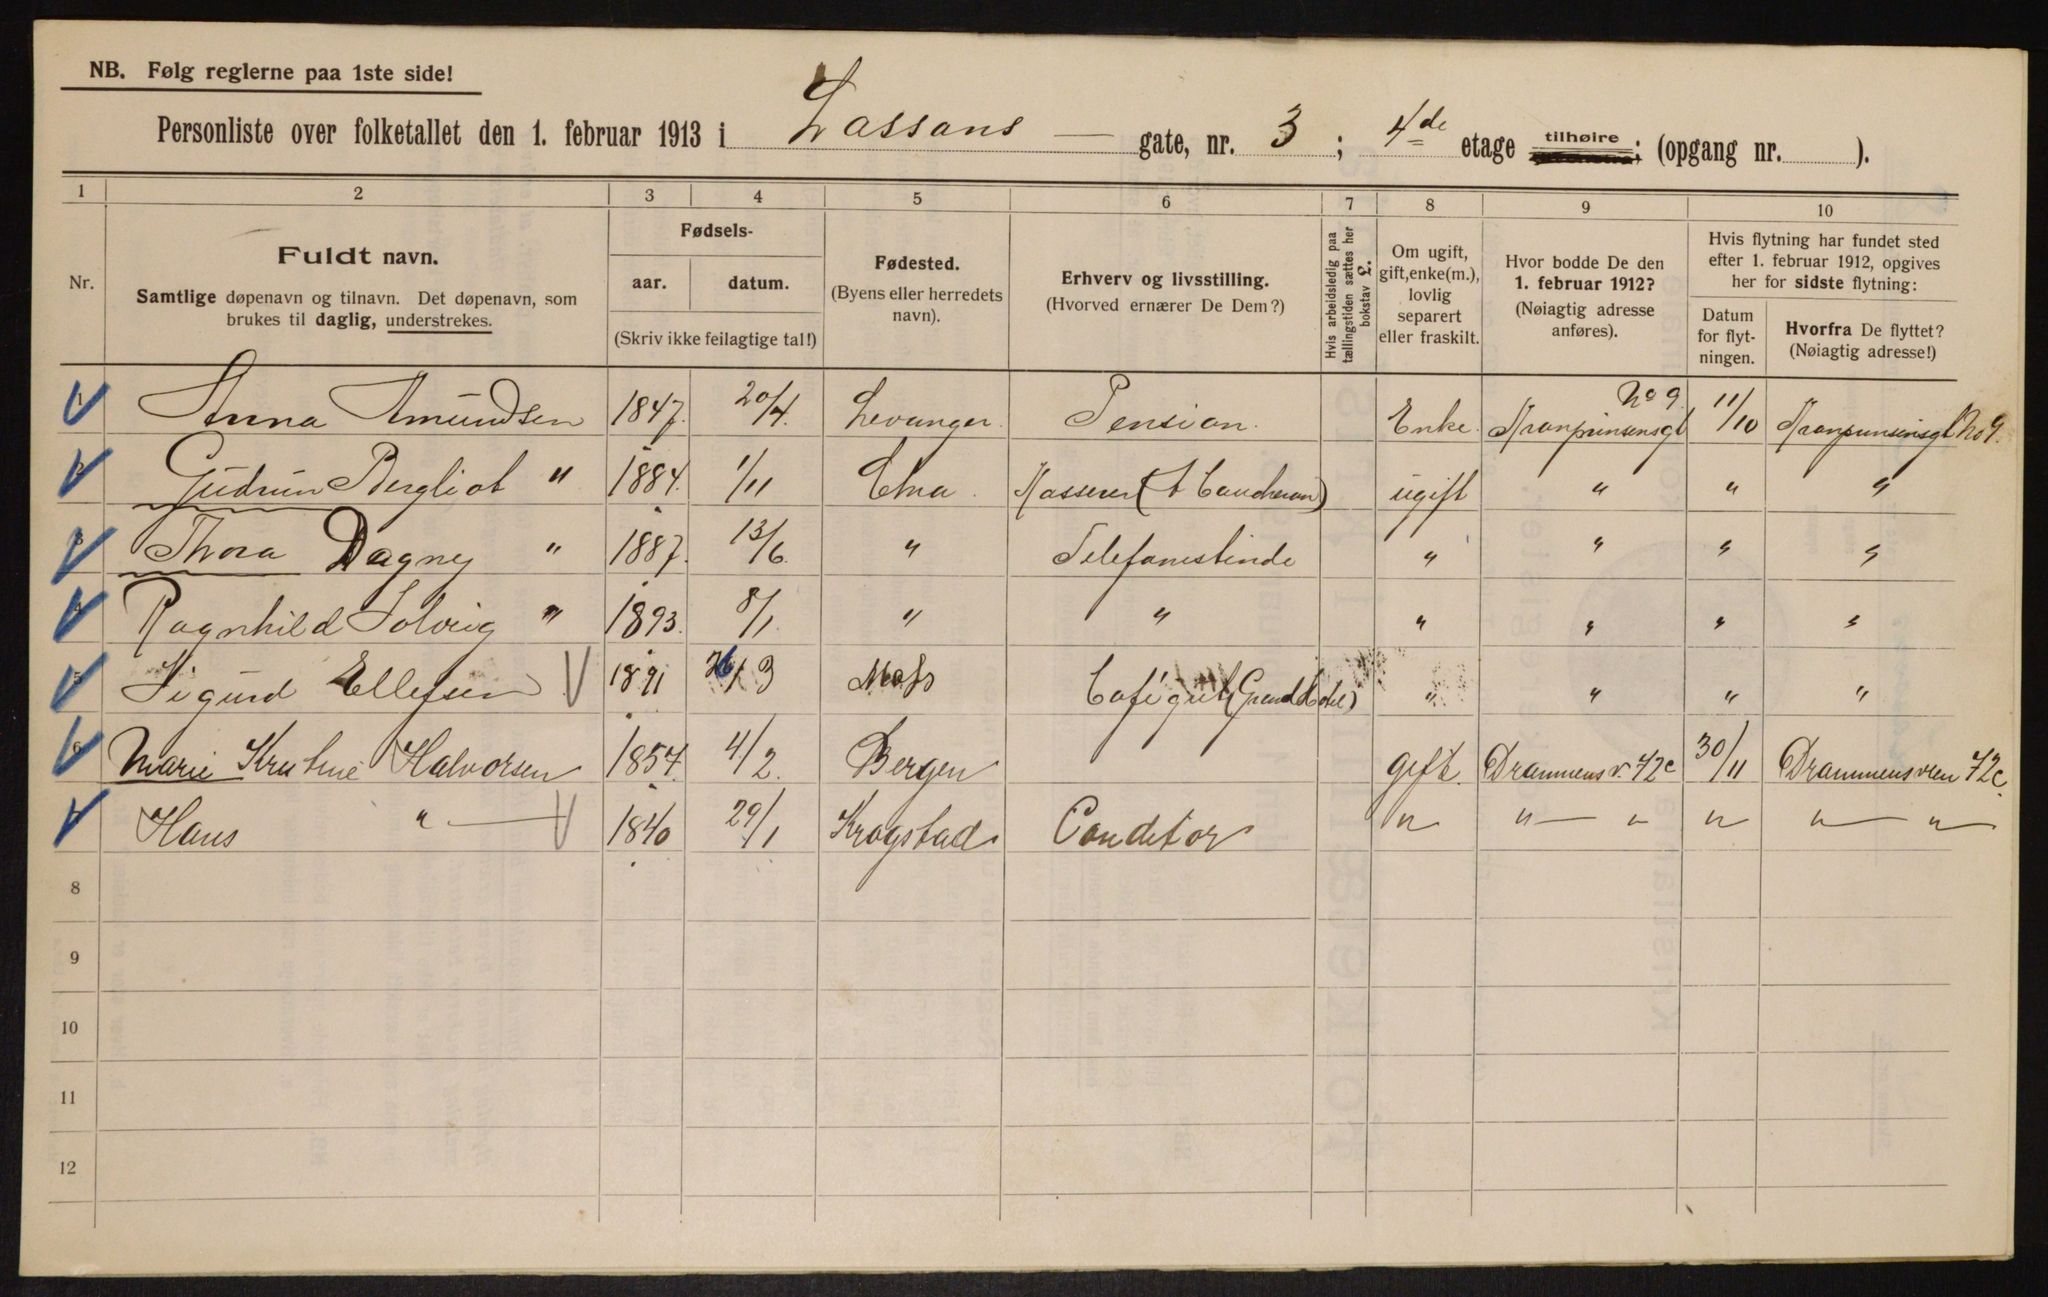 NB. Følg reglerne paa 1ste side!
Personliste over folketallet den 1. februar 1913 i Lassons gate, nr. 3 ; 4de etage tilhøire ; (opgang nr. ).
1 2 3 4 5 6 7 8 9 10
Nr.
Fuldt navn.
Samtlige døpenavn og tilnavn. Det døpenavn, som
brukes til daglig, understrekes.
Fødsels-
aar. datum.
(Skriv ikke feilagtige tal!)
Fødested.
(Byens eller herredets
navn).
Erhverv og livsstilling.
(Hvorved ernærer De Dem?)
Hvis arbeidsledig paa
tællingstiden sættes her
bokstav L.
Om ugift,
gift, enke(m.),
lovlig
separert
eller fraskilt.
Hvor bodde De den
1. februar 1912?
(Nøiagtig adresse
anføres).
Hvis flytning har fundet sted
efter 1. februar 1912, opgives
her for sidste flytning:
Datum
for flyt-
ningen.
Hvorfra De flyttet?
(Nøiagtig adresse!)
1 Anna Amundsen 1847. 20/4. Levanger. Pension. Enke. Kronprinsensgt No 9. 11/10 Kronprinsensgt No 9.
2 Gudrun Bergliot " 1884. 1/11 Chra. Kasserer ugift " " "
3 Thora Dagny " 1887. 13/6. " Telefonistinde " " " "
4 Ragnhild Solveig " 1893. 8/1. " " " " " "
5 Sigurd Ellefsen 1891 /3 Moss Cafégut (Grand Hotel) " " " "
6 Marie Kristine Halvorsen 1857. 4/2. Bergen gift. Drammensv. 72c 30/11 Drammensveien 72c.
Hans " 1840 29/1 Krogstad Conditor " " " " " "
8
9
10
11
12